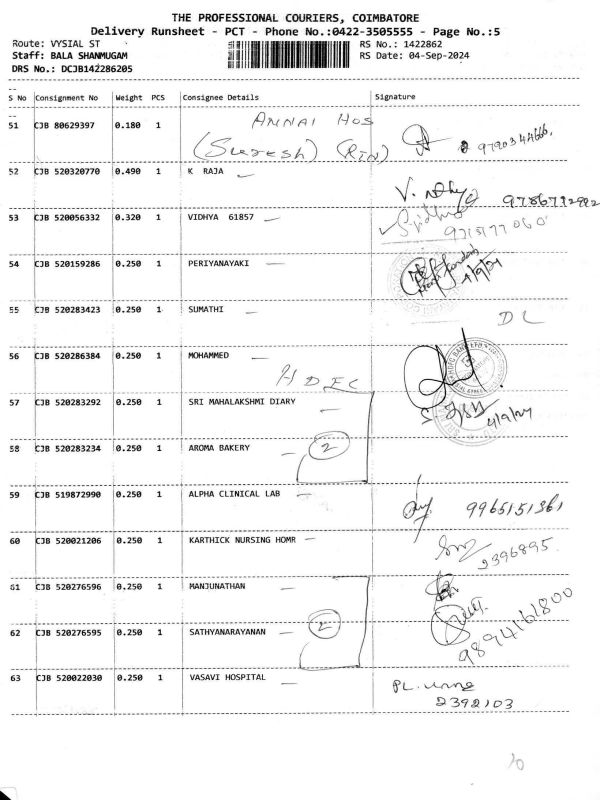 THE PROFESSIONAL COURIERS, COIMBATORE
Delivery Runsheet - PCT - Phone No.:0422-3505555 - Page No.:5
Route: VYSIAL ST RS No.: 1422862
Staff: BALA SHANMUGAM RS Date: 04-Sep-2024
DRS No.: DCJB142286205
S No Consignment No Weight PCS Consignee Details Signature
ANNAI HOS
51 CJB 80629397 0.180 1
(Suresh) (RIN)
52 CJB 520320770 0.490 1 K RAJA
9786772992
53 CJB 520056332 0.320 1 VIDHYA 61857
Sridhar
54 CJB 520159286 0.250 1 PERIYANAYAKI
4/9/24
55 CJB 520283423 0.250 1 SUMATHI
DL
56 CJB 520286384 0.250 1 MOHAMMED
HDFC
57 CJB 520283292 0.250 1 SRI MAHALAKSHMI DIARY
4/9/24
58 CJB 520283234 0.250 1 AROMA BAKERY 2
59 CJB 519872990 0.250 1 ALPHA CLINICAL LAB
9965151361
60 CJB 520021206 0.250 1 KARTHICK NURSING HOMR
2396895
61 CJB 520276596 0.250 1 MANJUNATHAN
62 CJB 520276595 0.250 1 SATHYANARAYANAN 2
9894161800
63 CJB 520022030 0.250 1 VASAVI HOSPITAL
2392103